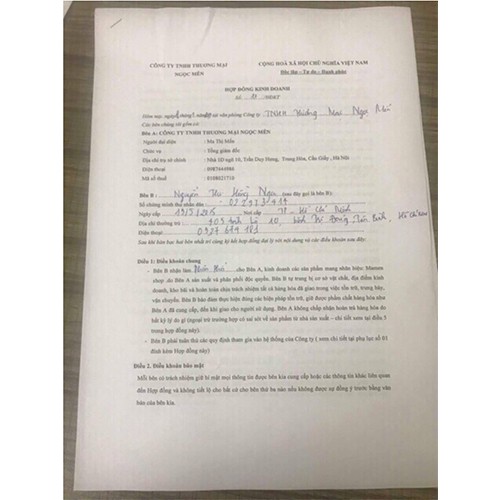 CÔNG TY TNHH THƯƠNG MẠI
NGỌC MIÊN
CỘNG HOÀ XÃ HỘI CHỦ NGHĨA VIỆT NAM
Độc lập – Tự do – Hạnh phúc
HỢP ĐỒNG KINH DOANH
Hôm nay, tại văn phòng Công ty TNHH Thương Mại Ngọc
Các bên chúng tôi gồm có:
Bên A: CÔNG TY TNHH THƯƠNG MẠI NGỌC MIÊN
Người đại diện : Ma Thị Miền
Chức vụ : Tổng giám đốc
Địa chỉ trụ sở chính : Nhà 1D ngõ 10, Trần Duy Hưng, Trung Hòa, Cầu Giấy, Hà Nội
Điện thoại : 0987644986
Mã số thuế : 0108021710
Bên B : Nguyễn Thị Hồng Nga (sau đây gọi là bên B):
Số chứng minh thư nhân dân :
Ngày cấp : Nơi cấp : TP Hồ Chí Minh
Địa chỉ thường trú : tỉnh lộ 10, Hồ Chí Minh
Điện thoại : 0937 619 181
Sau khi bàn bạc hai bên nhất trí cùng ký kết hợp đồng đại lý với nội dung và các điều khoản sau đây:
Điều 1: Điều khoản chung
- Bên B nhận làm cho Bên A, kinh doanh các sản phẩm mang nhãn hiệu:
shop .do Bên A sản xuất và phân phối độc quyền. Bên B tự trang bị cơ sở vật chất, địa điểm kinh
doanh, kho bãi và hoàn toàn chịu trách nhiệm tất cả hàng hóa đã giao trong việc tồn trữ, trưng bày,
vận chuyển. Bên B bảo đảm thực hiện đúng các biện pháp tồn trữ, giữ được phẩm chất hàng hóa như
Bên A đã cung cấp, đến khi giao cho người sử dụng. Bên A không chấp nhận hoàn trả hàng hóa do
bất kỳ lý do gì (ngoại trừ trường hợp có sai sót về sản phẩm từ nhà sản xuất – chi tiết xem tại điều 5
trong hợp đồng này).
- Bên B phải tuân thủ các quy định tham gia vào hệ thống của Công ty ( xem chi tiết tại phụ lục số 01
đính kèm Hợp đồng này)
Điều 2. Điều khoản bảo mật
Mỗi bên có trách nhiệm giữ bí mật mọi thông tin được bên kia cung cấp hoặc các thông tin khác liên quan
đến Hợp đồng và không tiết lộ cho bất cứ cho bên thứ ba nào nếu không được sự đồng ý trước bằng văn
bản của bên kia.